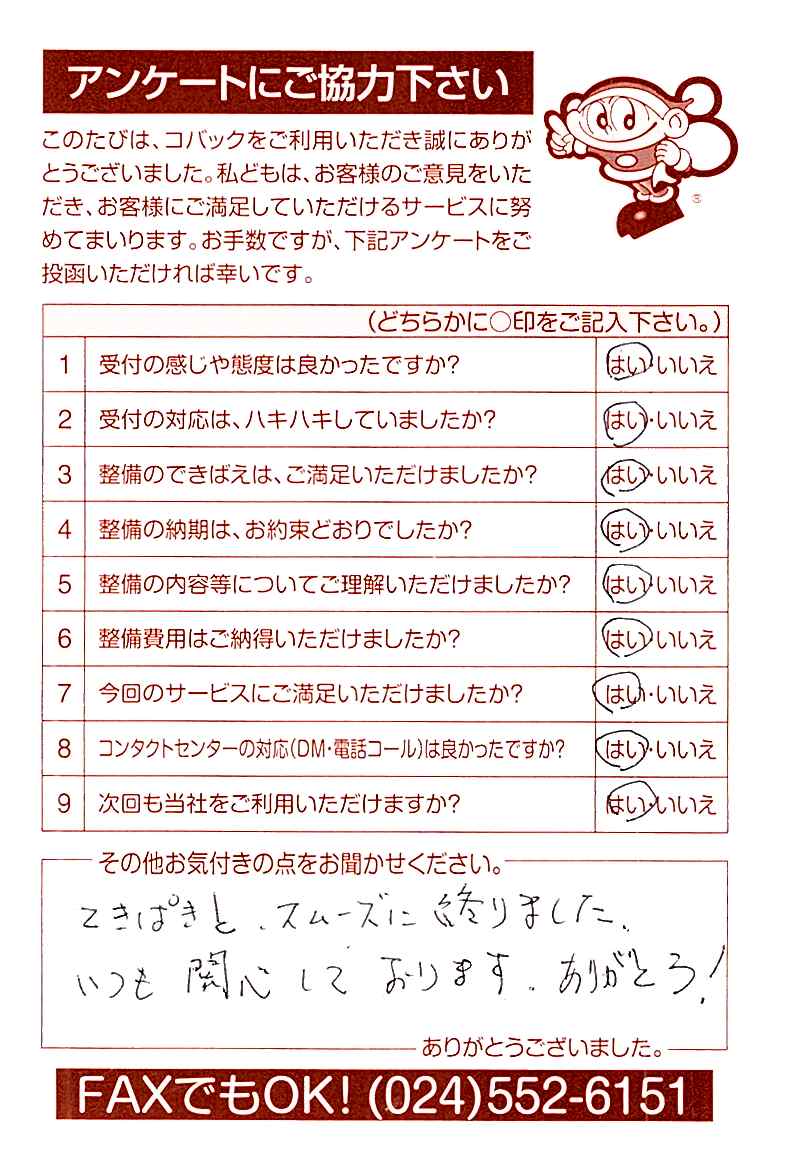 アンケートにご協力下さい
このたびは、コバックをご利用いただき誠にありが
とうございました。私どもは、お客様のご意見をいた
だき、お客様にご満足していただけるサービスに努
めてまいります。お手数ですが、下記アンケートをご
投函いただければ幸いです。
®
(どちらかに○印をご記入下さい。)
1 受付の感じや態度は良かったですか? はい・いいえ
2 受付の対応は、ハキハキしていましたか? はい・いいえ
3 整備のできばえは、ご満足いただけましたか? はい・いいえ
4 整備の納期は、お約束どおりでしたか? はい・いいえ
5 整備の内容等についてご理解いただけましたか? はい・いいえ
6 整備費用はご納得いただけましたか? はい・いいえ
7 今回のサービスにご満足いただけましたか? はい・いいえ
8 コンタクトセンターの対応(DM・電話コール)は良かったですか? はい・いいえ
9 次回も当社をご利用いただけますか? はい・いいえ
その他お気付きの点をお聞かせください。
てきぱきと、スムーズに終りました。
いつも関心しております。ありがとう!
ありがとうございました。
FAXでもOK! (024)552-6151